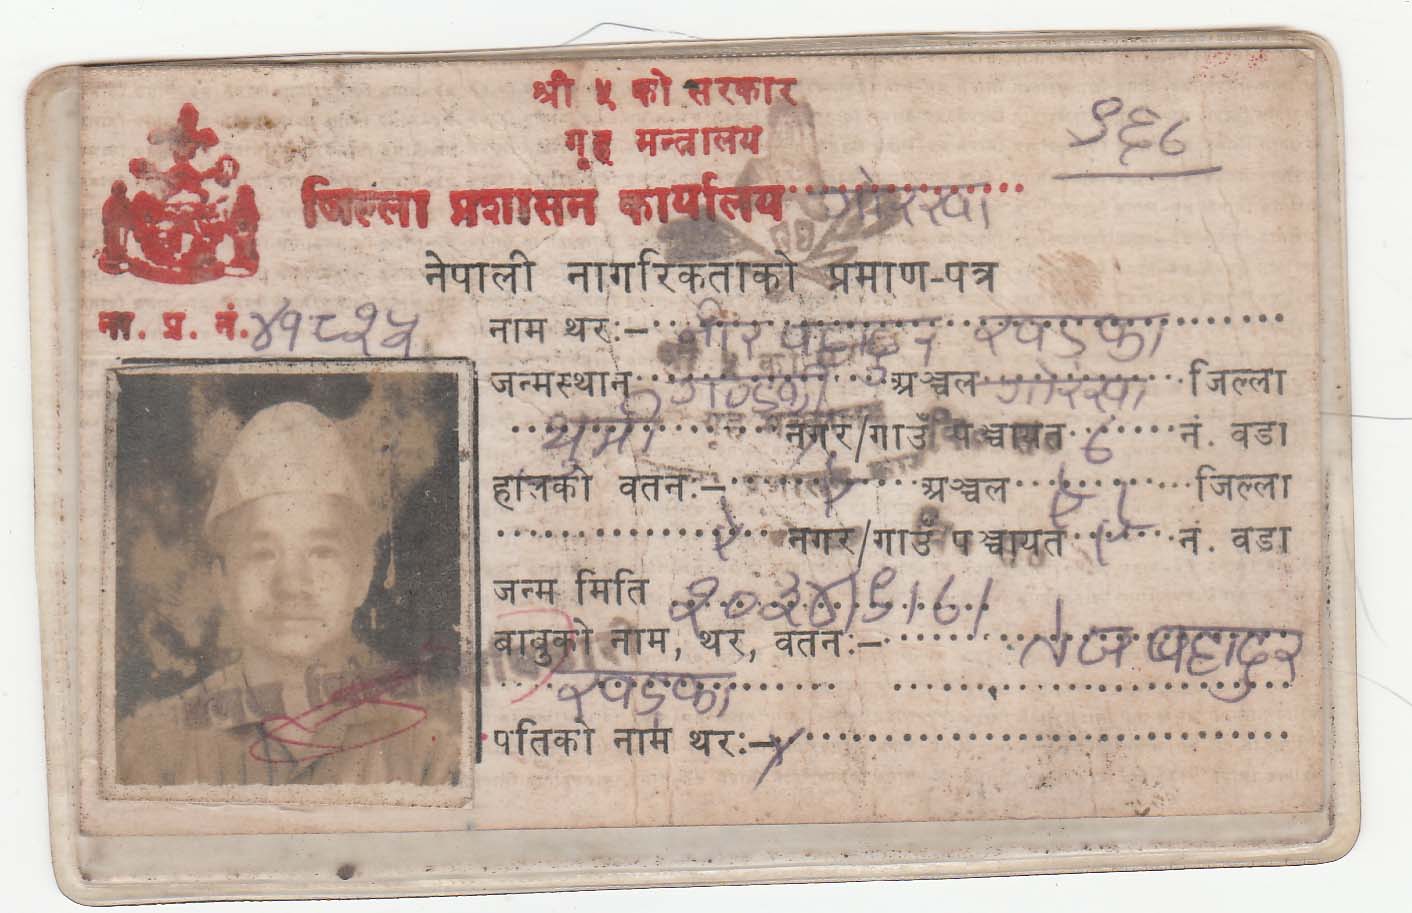 श्री ५ को सरकार
गृह मन्त्रालय
९६८
जिल्ला प्रशासन कार्यालय गोरखा
नेपाली नागरिकताको प्रमाण-पत्र
ना. प्र. नं. ४१८२५
नाम थर:- बहादुर खड्का
जन्मस्थान गण्डकी अञ्चल गोरखा जिल्ला
थुमी नगर/गाउँ पञ्चायत ८ नं. वडा
हालको वतन:- अञ्चल जिल्ला
नगर/गाउँ पञ्चायत नं. वडा
जन्म मिति २०३४।९।८।
बाबुको नाम, थर, वतन:- तेज बहादुर
खड्का
पतिको नाम थर:- x